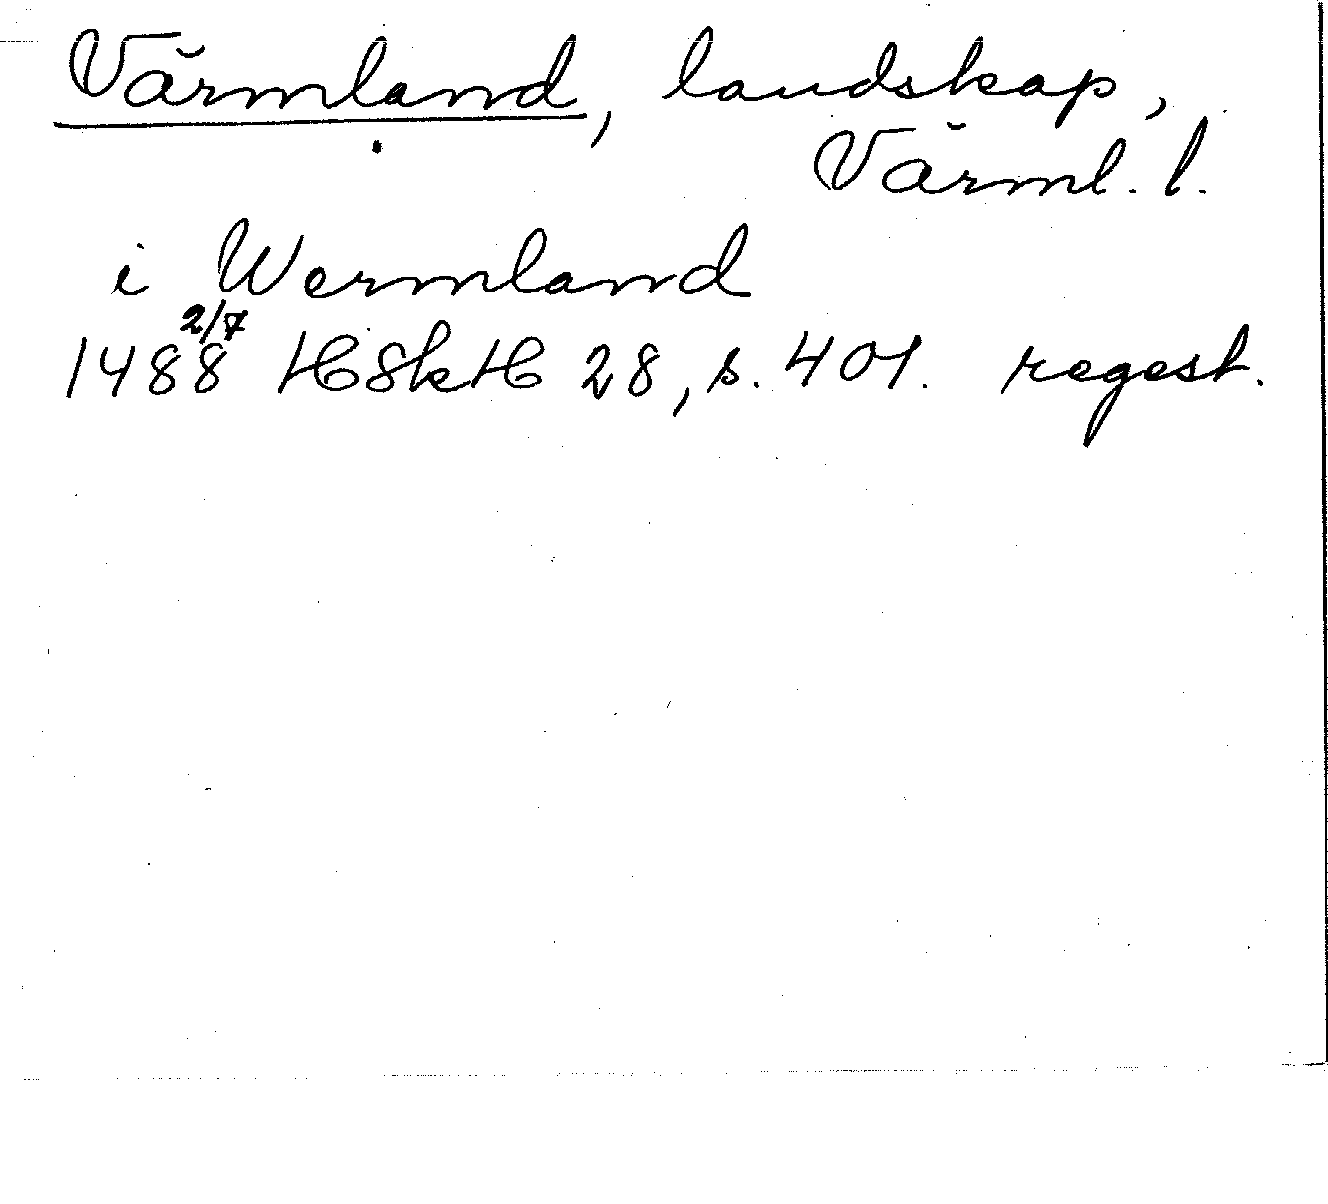 Värmland, landskap,
Värml. l.
i Wermland
1488 2/7 HSkH 28, s. 401. regest.